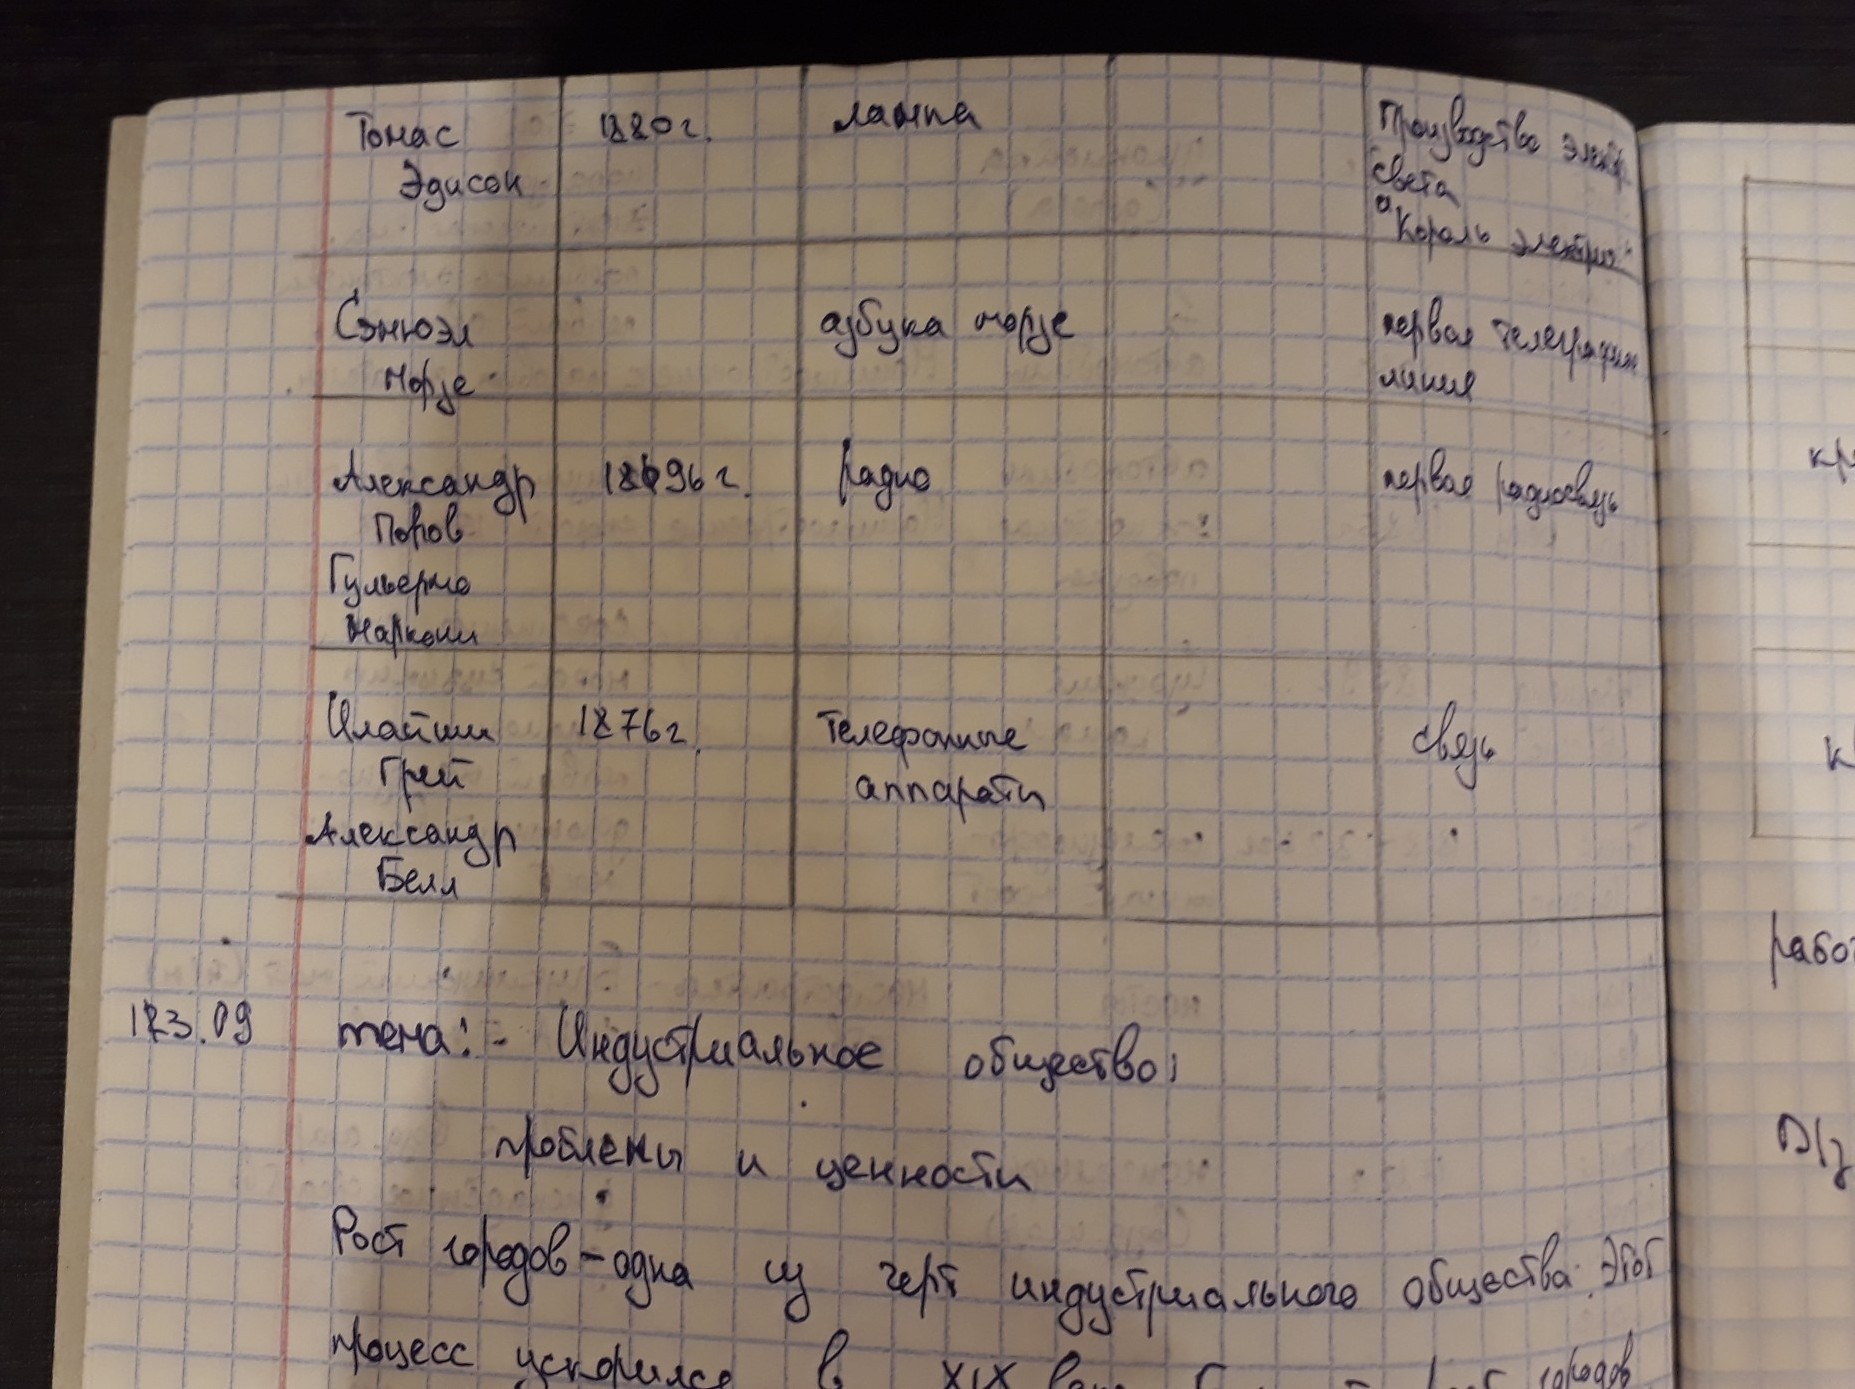 Томас 1880г. лампа Производство электр.
Эдисон света
"Король электри."
Сэмюэл азбука морзе первая телеграфн
Морзе линия
Александр 1896г. радио первая радиосвязь
Попов
Гульермо
Маркони
Илайши 1876г. телефонные связь
Грей аппараты
Александр
Белл
13.09 тема:- Индустриальное общество:
проблемы и ценности
Рост городов - одна из черт индустриального общества. Этот
процесс ускорился в XIX городов
кр
к
рабо
Д/з